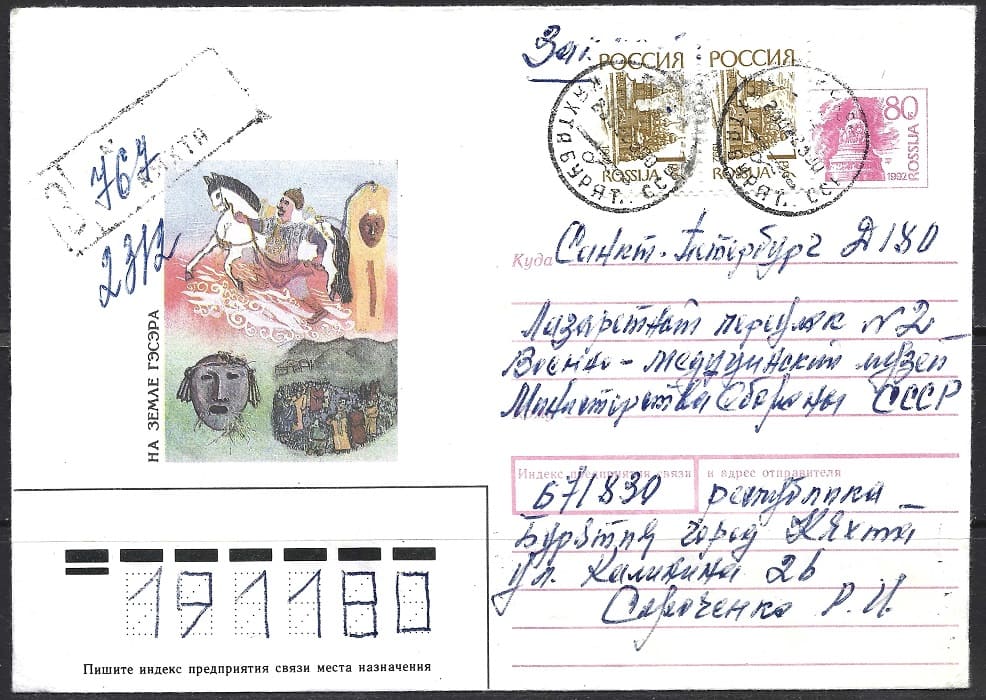 Заказ
РОССИЯ
1
ROSSIJA
РОССИЯ
1
ROSSIJA
80
ROSSIJA
1992
КЯХТА БУРЯТ. ССР
КЯХТА БУРЯТ. ССР
КЯХТА
767
23/2
НА ЗЕМЛЕ ГЭСЭРА
Куда Санкт-Петербург Д180
Лазаретный переулок №2
Военно-медицинский музей
Министерства Обороны СССР
Индекс предприятия связи и адрес отправителя
671830 республика
Бурятия город Кяхта
ул. Калинина 26
Сороченко Р. И.
191180
Пишите индекс предприятия связи места назначения